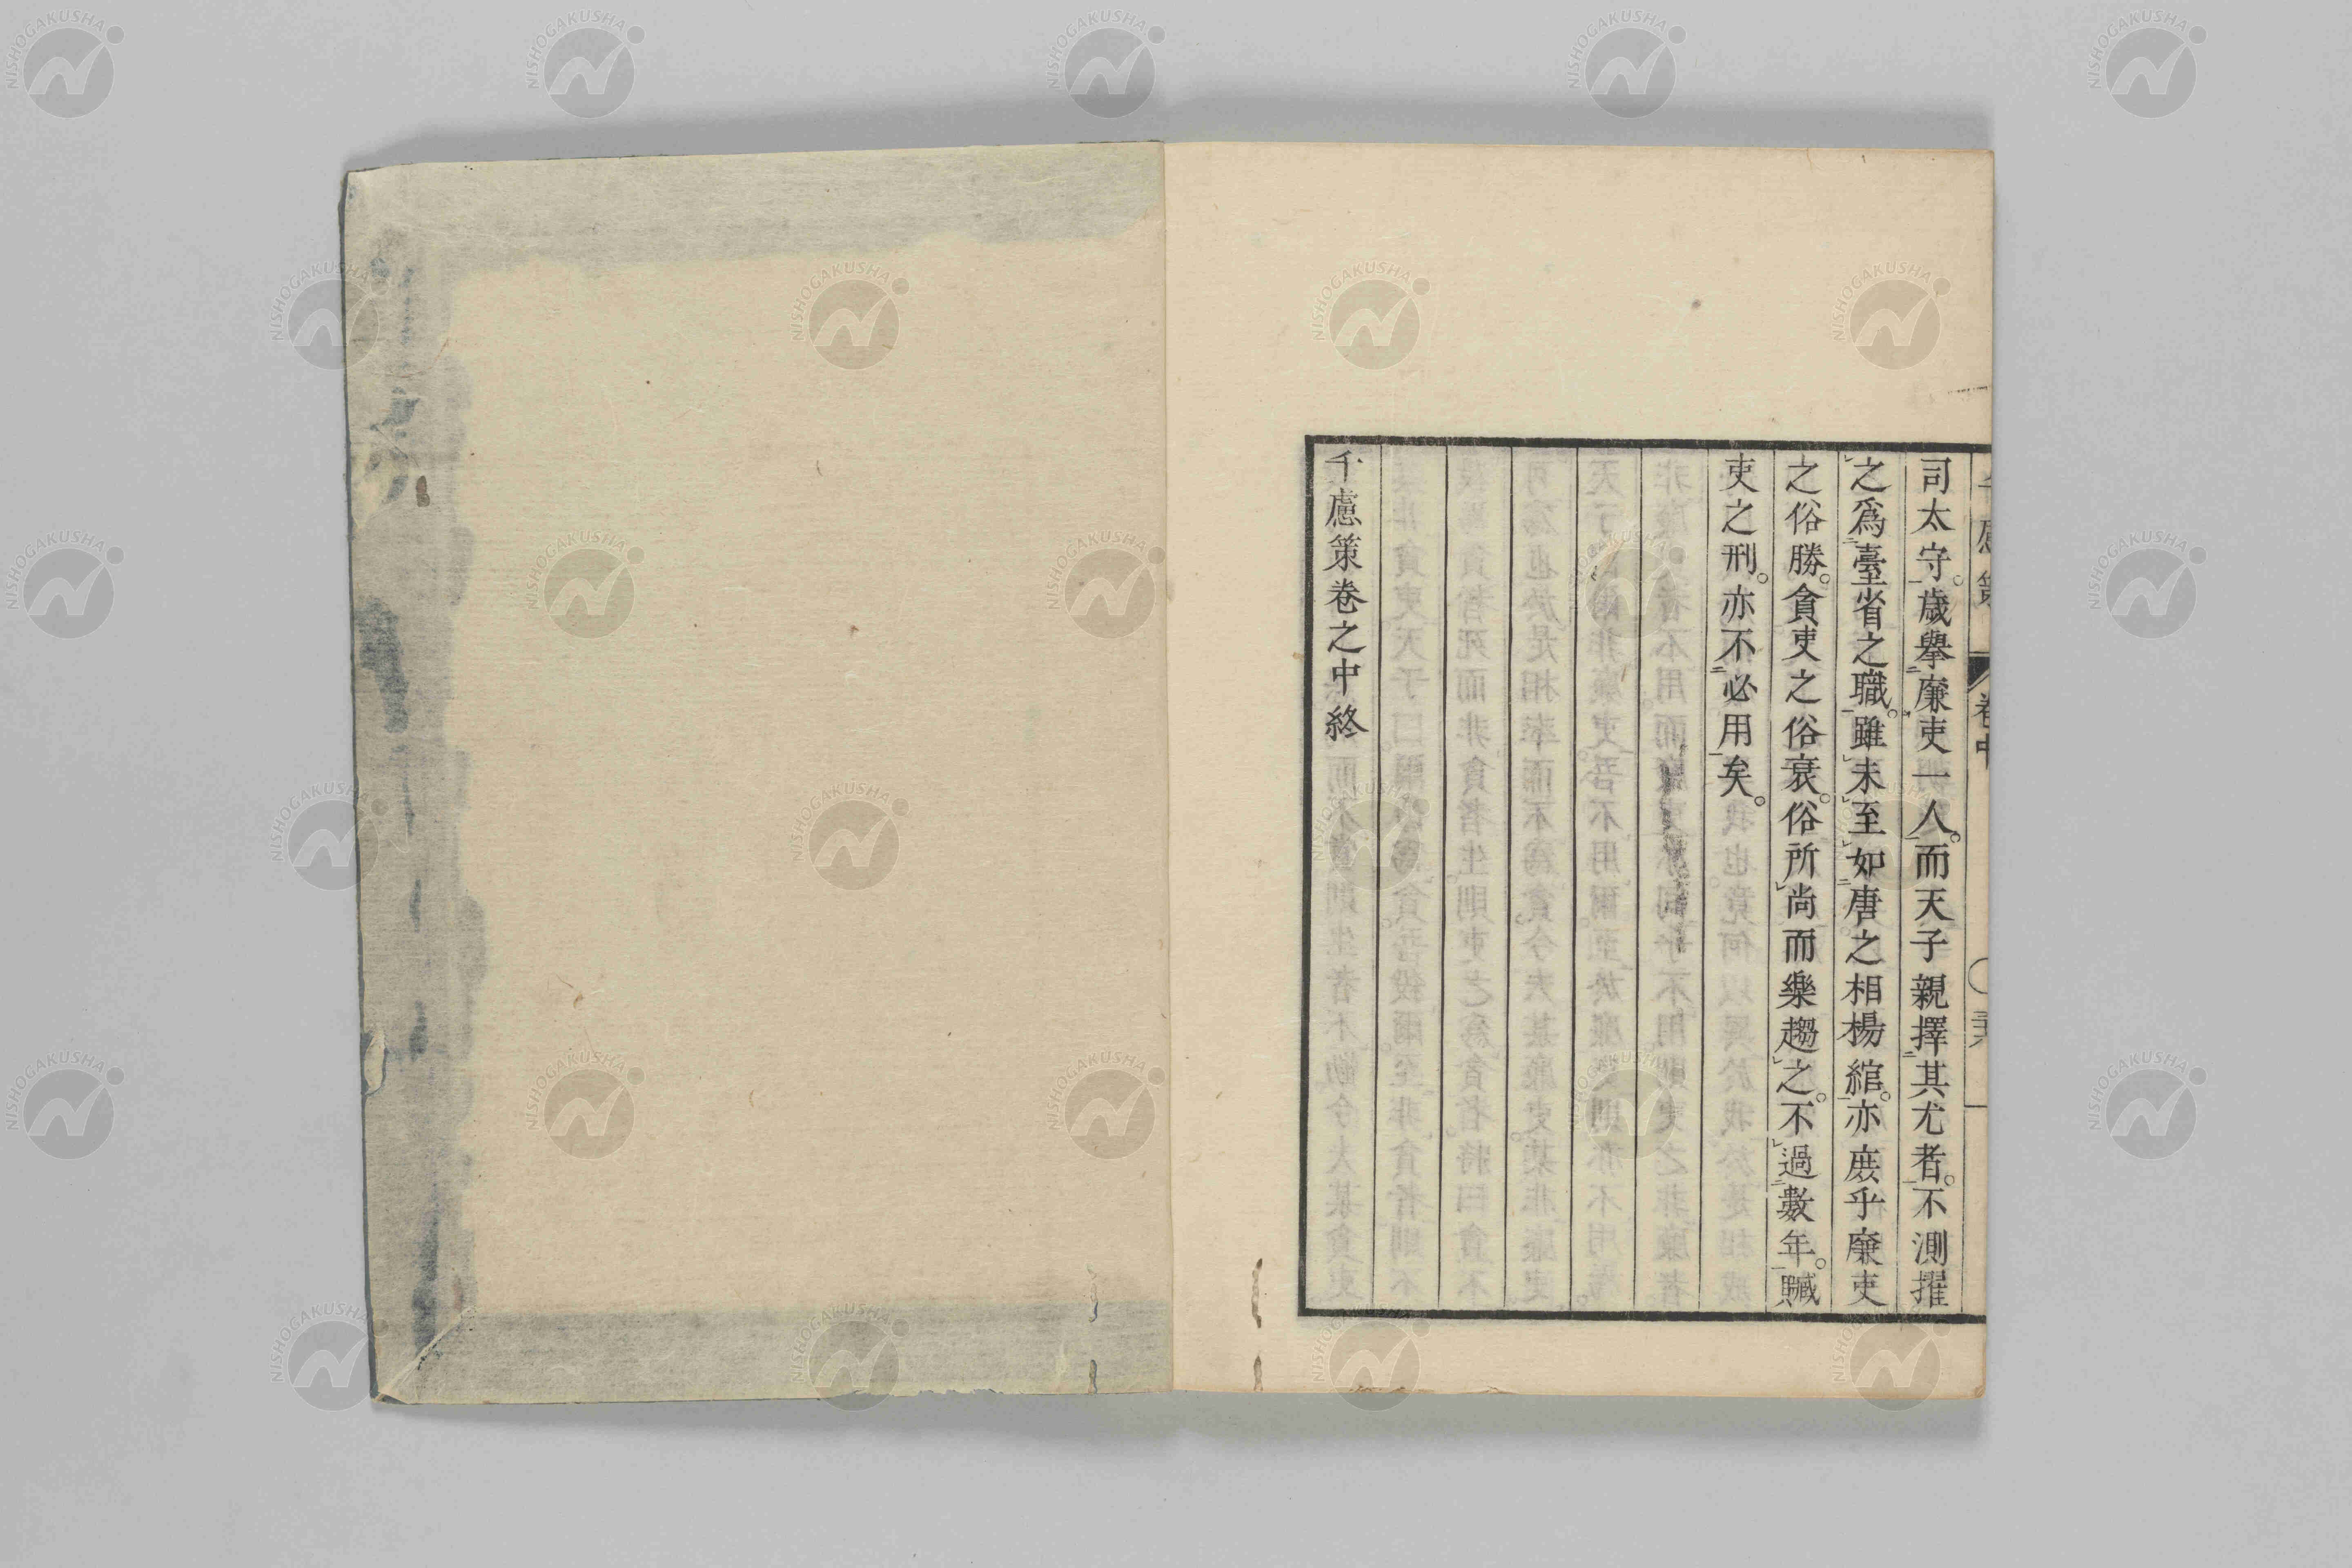 司太守。歲舉廉吏一人。而天子親擇其尤者。不測擢
之爲臺省之職。雖未至如唐之相楊綰。亦庶乎廉吏
之俗勝。貪吏之俗衰。俗所尚而樂趨之。不過數年。贓
吏之刑。亦不必用矣。
千慮策卷之中終
NISHOGAKUSHA